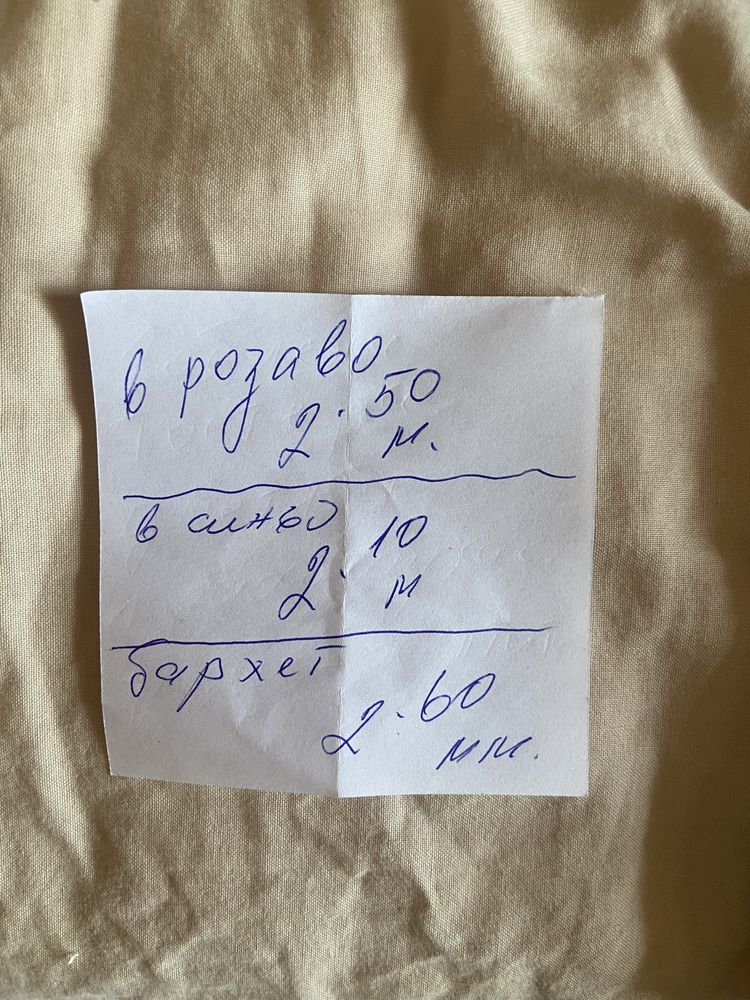 в розаво
2.50
м.
в синьо
2.10
м
бархет
2.60
мм.